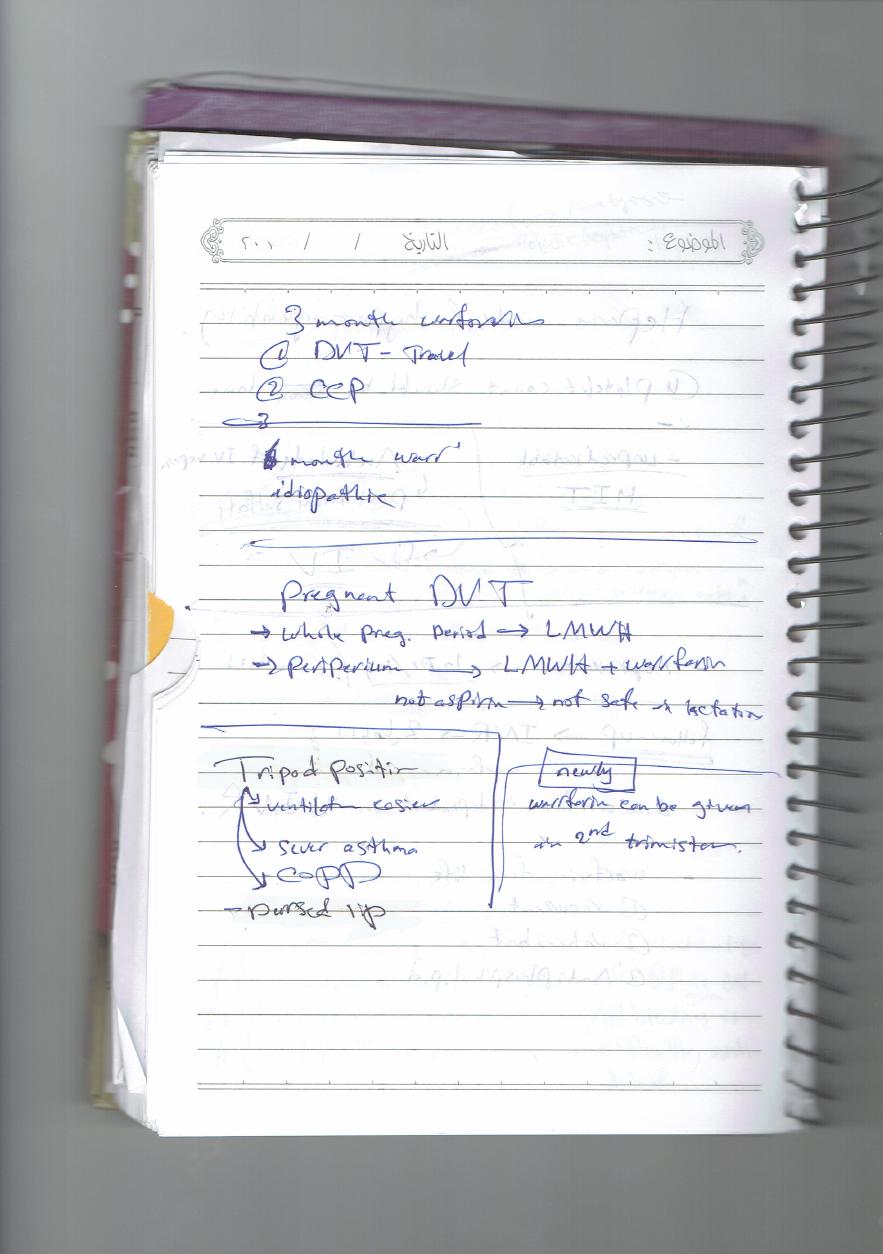 الموضوع : التاريخ / / ٢٠١
3 month warfarin
① DVT - Travel
② CCP
3
6 month warf
idiopathic
Pregnent DVT
→ whole preg. period → LMWH
→ Periperium → LMWH + warfarin
not aspirin → not safe in lactation
Tripod position
ventilation easier
sever asthma
COPD
- pursed lip
newly
warfarin can be given
in 2nd trimister.